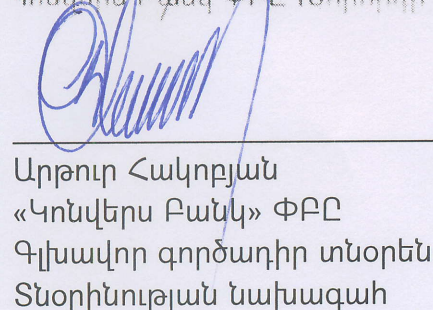 Արթուր Հակոբյան
«Կոնվերս Բանկ» ՓԲԸ
Գլխավոր գործադիր տնօրեն
Տնօրինության նախագահ